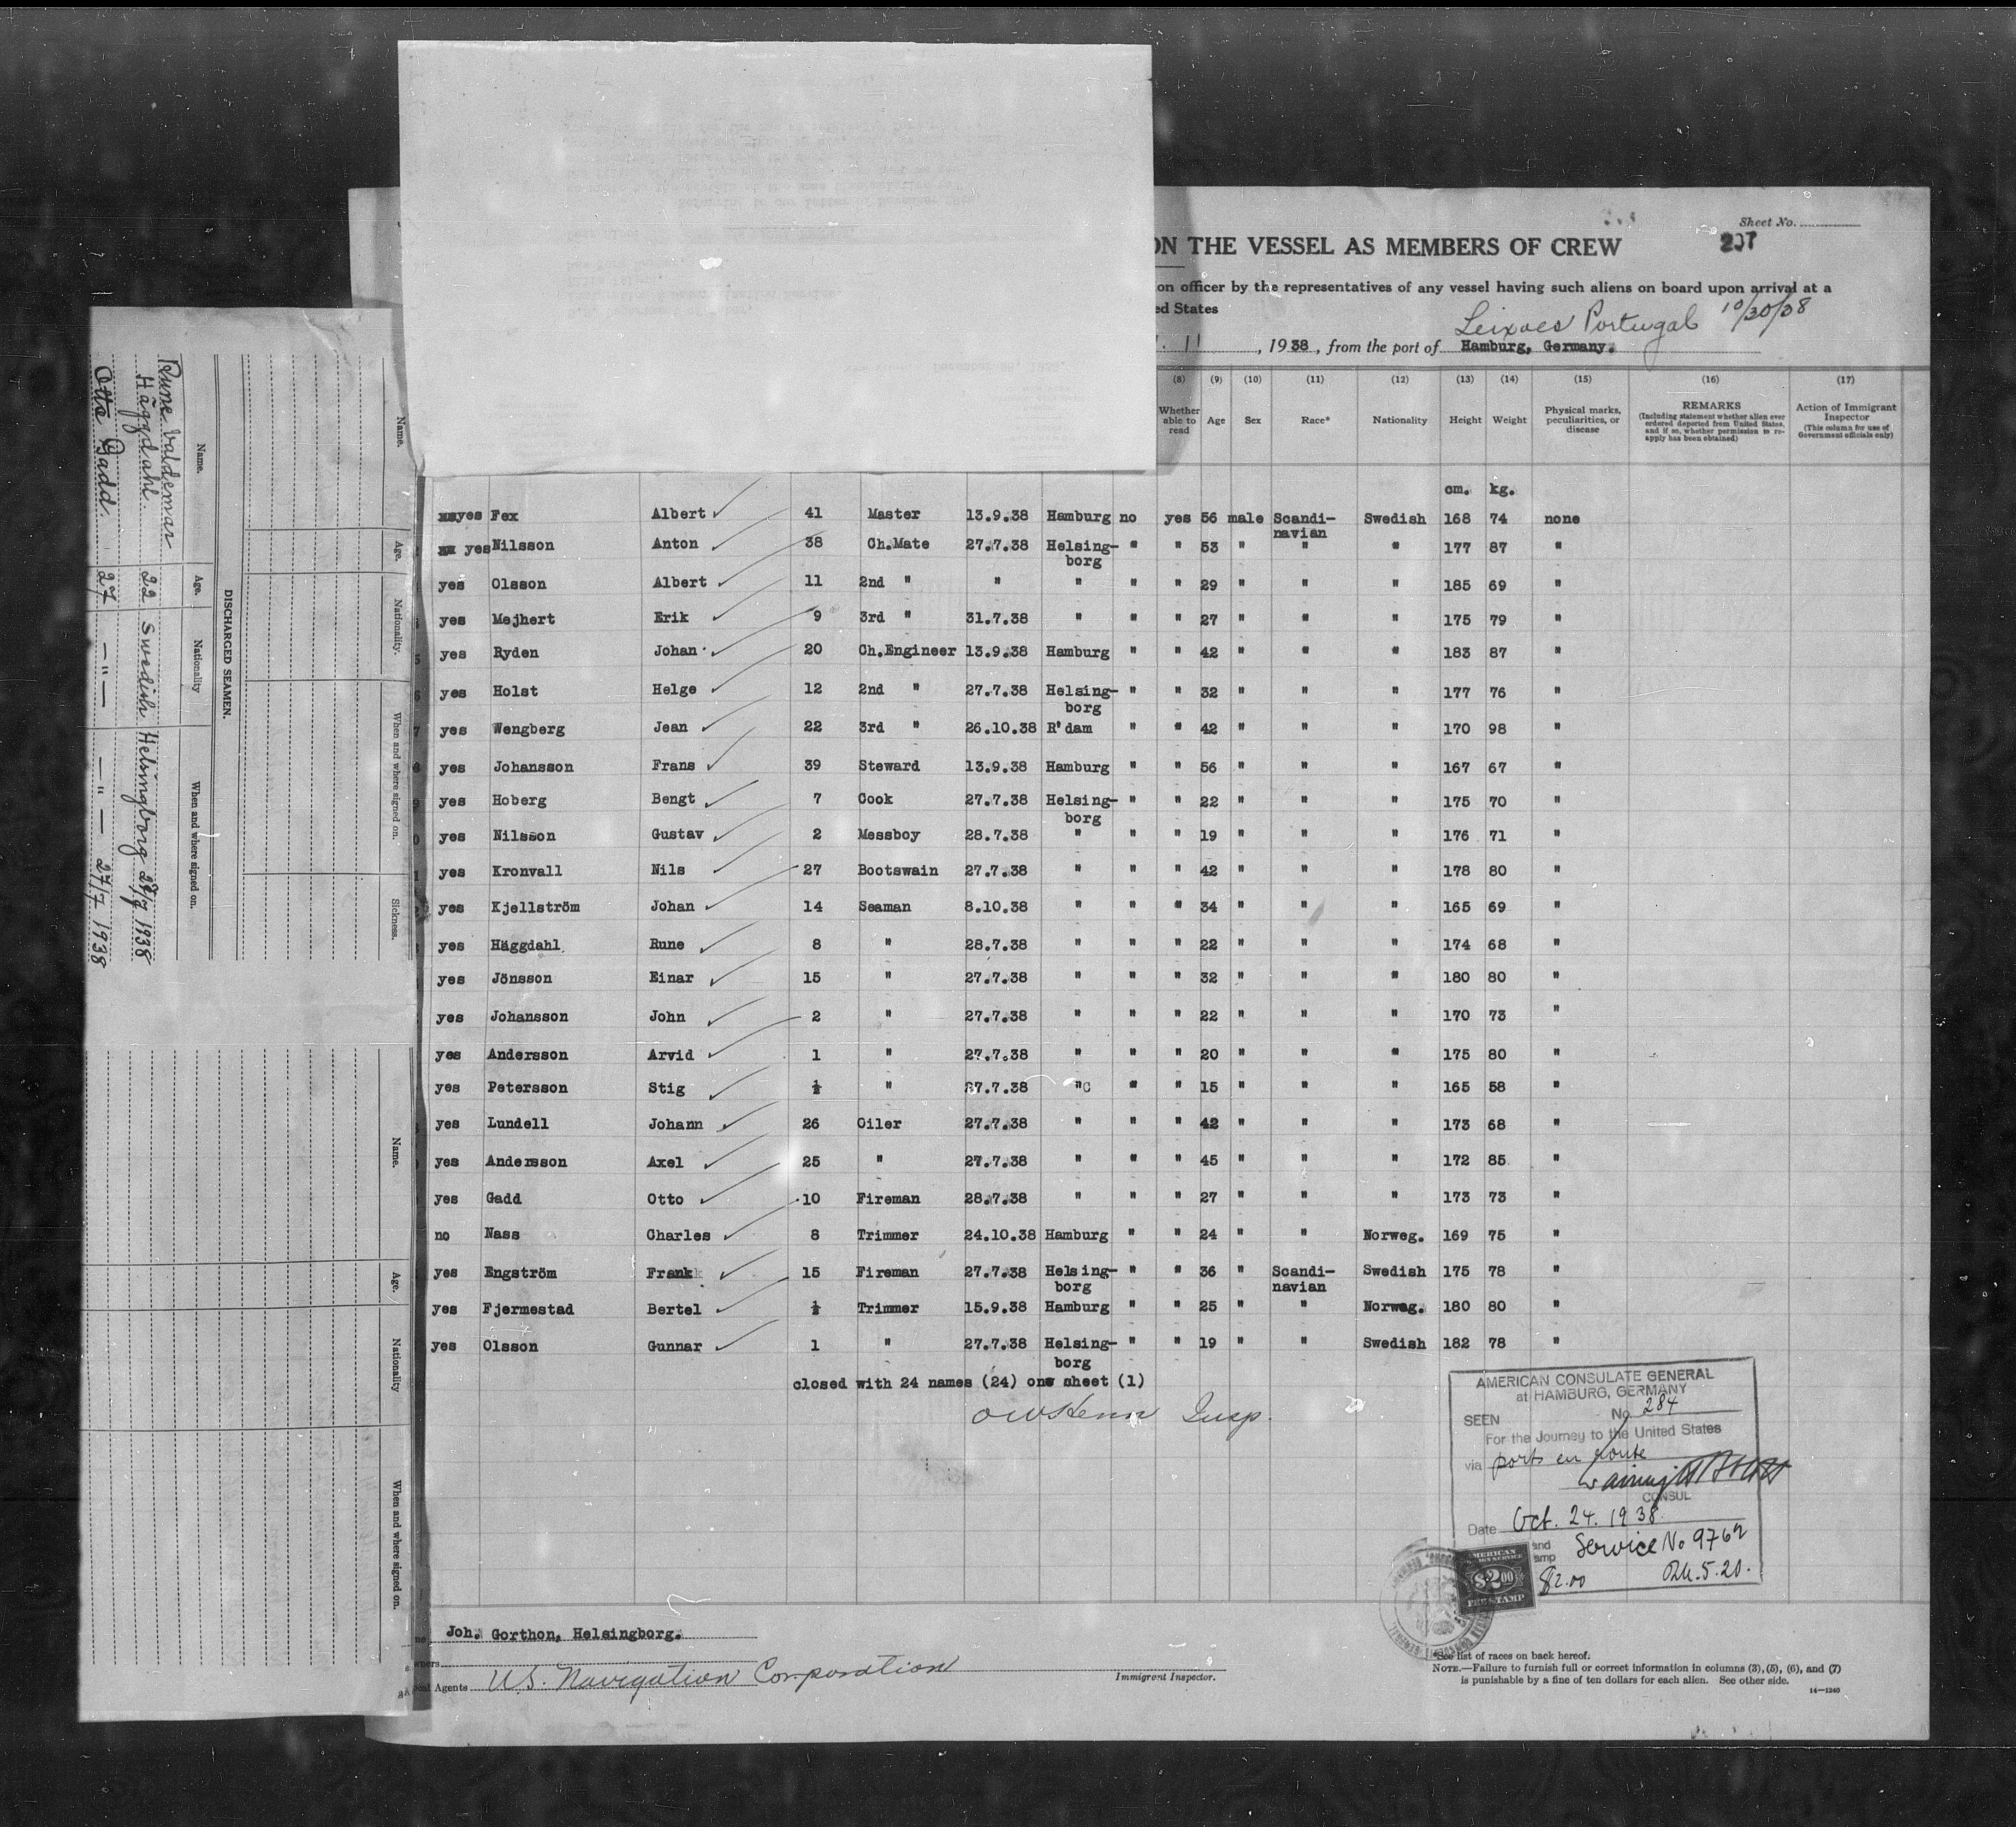 Sheet No.
207
ON THE VESSEL AS MEMBERS OF CREW
on officer by the representatives of any vessel having such aliens on board upon arrival at a
ed States
Leixoes Portugal 10/30/38
11, 1938, from the port of Hamburg, Germany.
(8) (9) (10) (11) (12) (13) (14) (15) (16) (17)
Whether able to read Age Sex Race* Nationality Height Weight Physical marks, peculiarities, or disease REMARKS (Including statement whether alien ever ordered deported from United States, and if so, whether permission to reapply has been obtained) Action of Immigrant Inspector (This column for use of Government officials only)
cm. kg.
yes Fex Albert 41 Master 13.9.38 Hamburg no yes 56 male Scandi-navian Swedish 168 74 none
yes Nilsson Anton 38 Ch.Mate 27.7.38 Helsing-borg " " 53 " " " 177 87 "
yes Olsson Albert 11 2nd " " " " " 29 " " " 185 69 "
yes Mejhert Erik 9 3rd " 31.7.38 " " " 27 " " " 175 79 "
yes Ryden Johan 20 Ch.Engineer 13.9.38 Hamburg " " 42 " " " 183 87 "
yes Holst Helge 12 2nd " 27.7.38 Helsing-borg " " 32 " " " 177 76 "
yes Wengberg Jean 22 3rd " 26.10.38 R'dam " " 42 " " " 170 98 "
yes Johansson Frans 39 Steward 13.9.38 Hamburg " " 56 " " " 167 67 "
yes Hoberg Bengt 7 Cook 27.7.38 Helsing-borg " " 22 " " " 175 70 "
yes Nilsson Gustav 2 Messboy 28.7.38 " " " 19 " " " 176 71 "
yes Kronvall Nils 27 Bootswain 27.7.38 " " " 42 " " " 178 80 "
yes Kjellström Johan 14 Seaman 8.10.38 " " " 34 " " " 165 69 "
yes Häggdahl Rune 8 " 28.7.38 " " " 22 " " " 174 68 "
yes Jönsson Einar 15 " 27.7.38 " " " 32 " " " 180 80 "
yes Johansson John 2 " 27.7.38 " " " 22 " " " 170 73 "
yes Andersson Arvid 1 " 27.7.38 " " " 20 " " " 175 80 "
yes Petersson Stig ½ " 27.7.38 " " " 15 " " " 165 58 "
yes Lundell Johann 26 Oiler 27.7.38 " " " 42 " " " 173 68 "
yes Andersson Axel 25 " 27.7.38 " " " 45 " " " 172 85 "
yes Gadd Otto 10 Fireman 28.7.38 " " " 27 " " " 173 73 "
no Nass Charles 8 Trimmer 24.10.38 Hamburg " " 24 " " Norweg. 169 75 "
yes Engström Frank 15 Fireman 27.7.38 Helsing-borg " " 36 " Scandi-navian Swedish 175 78 "
yes Fjermestad Bertel ½ Trimmer 15.9.38 Hamburg " " 25 " " Norweg. 180 80 "
yes Olsson Gunnar 1 " 27.7.38 Helsing-borg " " 19 " " Swedish 182 78 "
closed with 24 names (24) one sheet (1)
Insp.
AMERICAN CONSULATE GENERAL
at HAMBURG, GERMANY
SEEN No 284
For the Journey to the United States
via ports en route
CONSUL
Date Oct. 24. 1938.
Service No 9769
$2.00 RM.5.20.
AMERICAN
$2.00
FEE STAMP
Joh. Gorthon, Helsingborg.
Agents U.S. Navigation Corporation
Immigrant Inspector.
*See list of races on back hereof.
NOTE.—Failure to furnish full or correct information in columns (3), (5), (6), and (7)
is punishable by a fine of ten dollars for each alien. See other side.
14—1240
DISCHARGED SEAMEN.
Name. Age. Nationality When and where signed on.
Rune Valdemar
Häggdahl. 22 Swedish Helsingborg 28/7 1938
Otto Gadd. 27 —"— —"— 27/7 1938
Name. Age. Nationality. When and where signed on. Sickness.
Name. Age. Nationality When and where signed on.